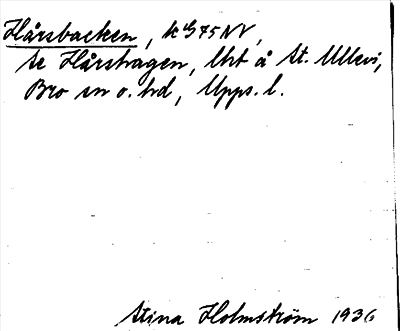 Hårsbacken, k bl 75 NV,
se Hårshagen, lht å St. Ullevi,
Bro sn o. hd, Upps. l.
Stina Holmström 1936